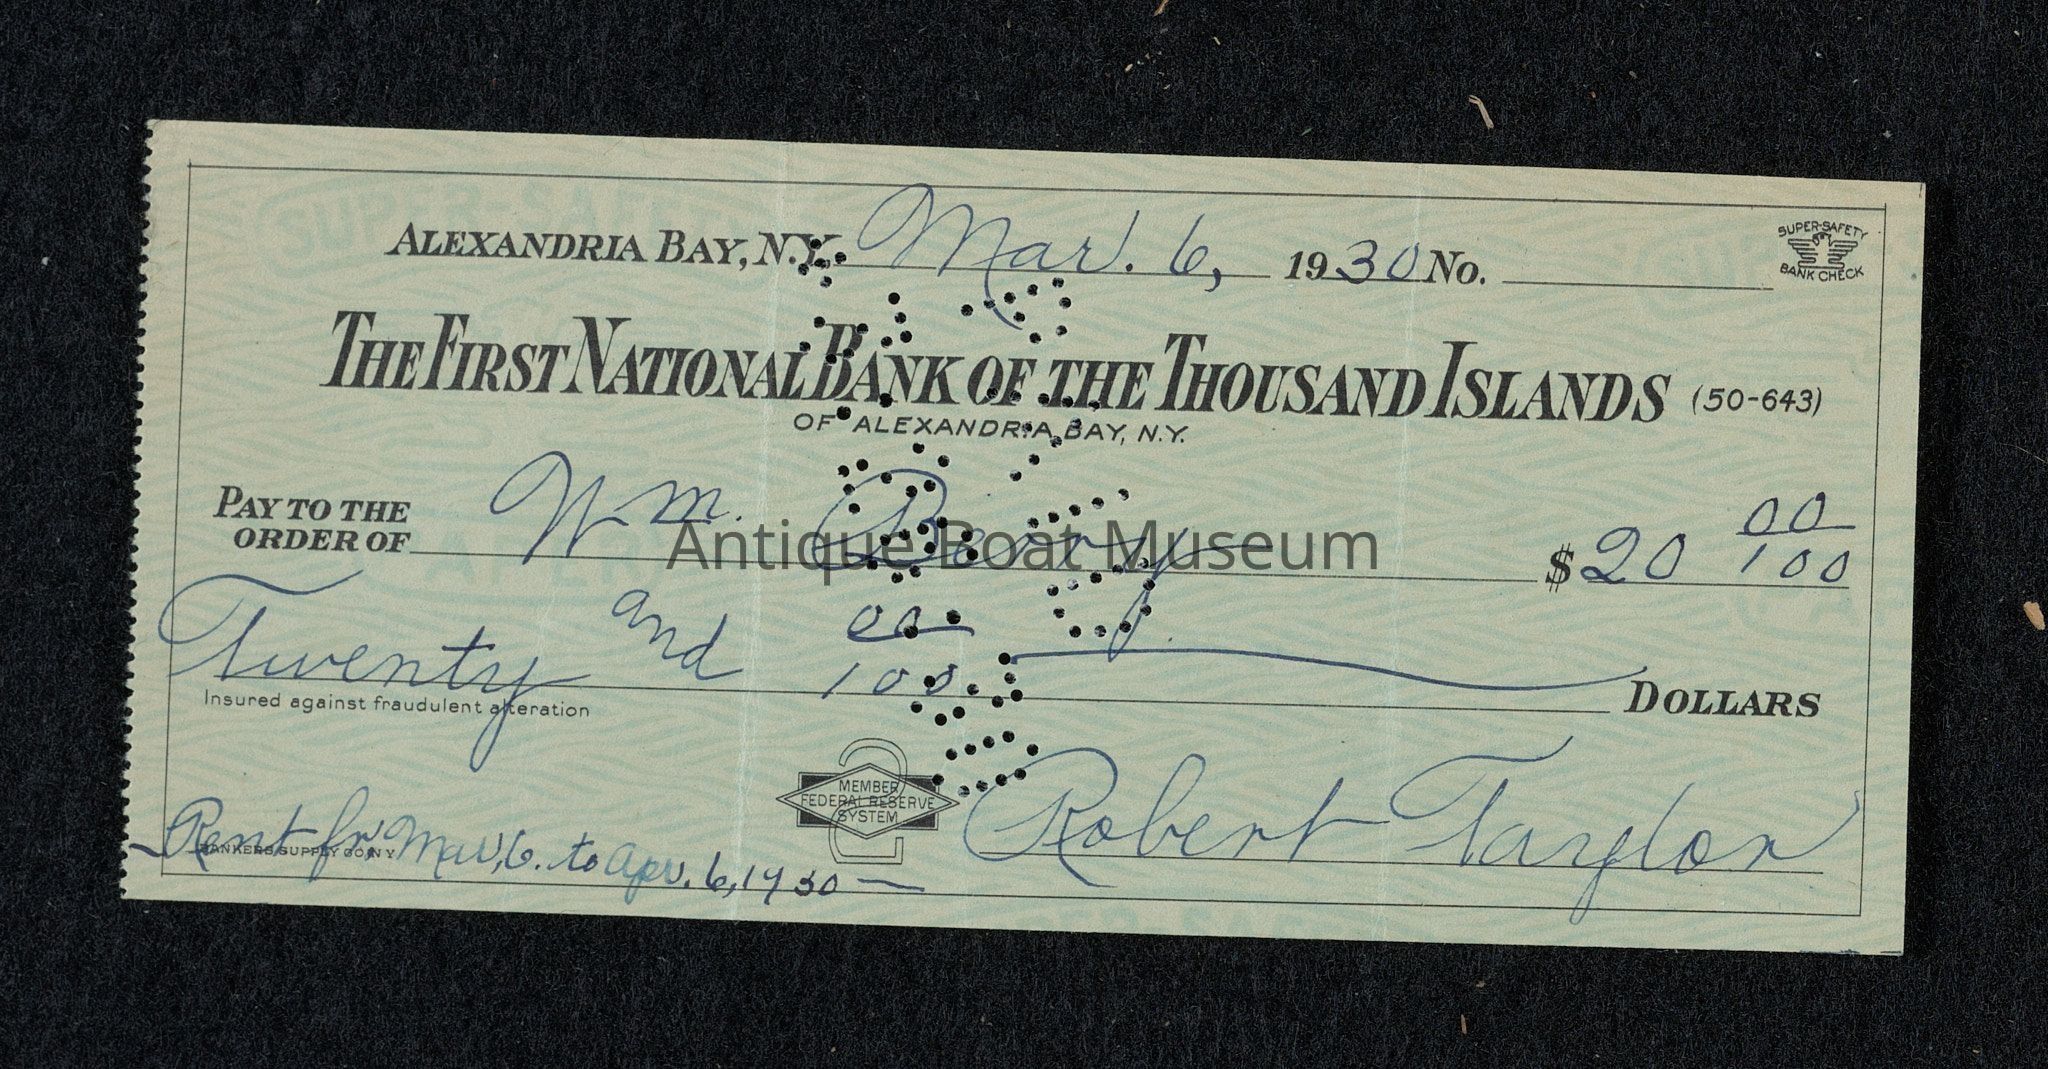 ALEXANDRIA BAY, N.Y. Mar. 6, 1930 No.
SUPER-SAFETY
BANK CHECK
THE FIRST NATIONAL BANK OF THE THOUSAND ISLANDS (50-643)
OF ALEXANDRIA BAY, N.Y.
PAY TO THE
ORDER OF Wm. Berry $20 00/100
Antique Boat Museum
Twenty and 00/100 DOLLARS
Insured against fraudulent alteration
MEMBER
FEDERAL RESERVE
SYSTEM
Robert Taylor
BANKERS SUPPLY CO N Y
Rent fr. Mar. 6. to Apr. 6, 1930